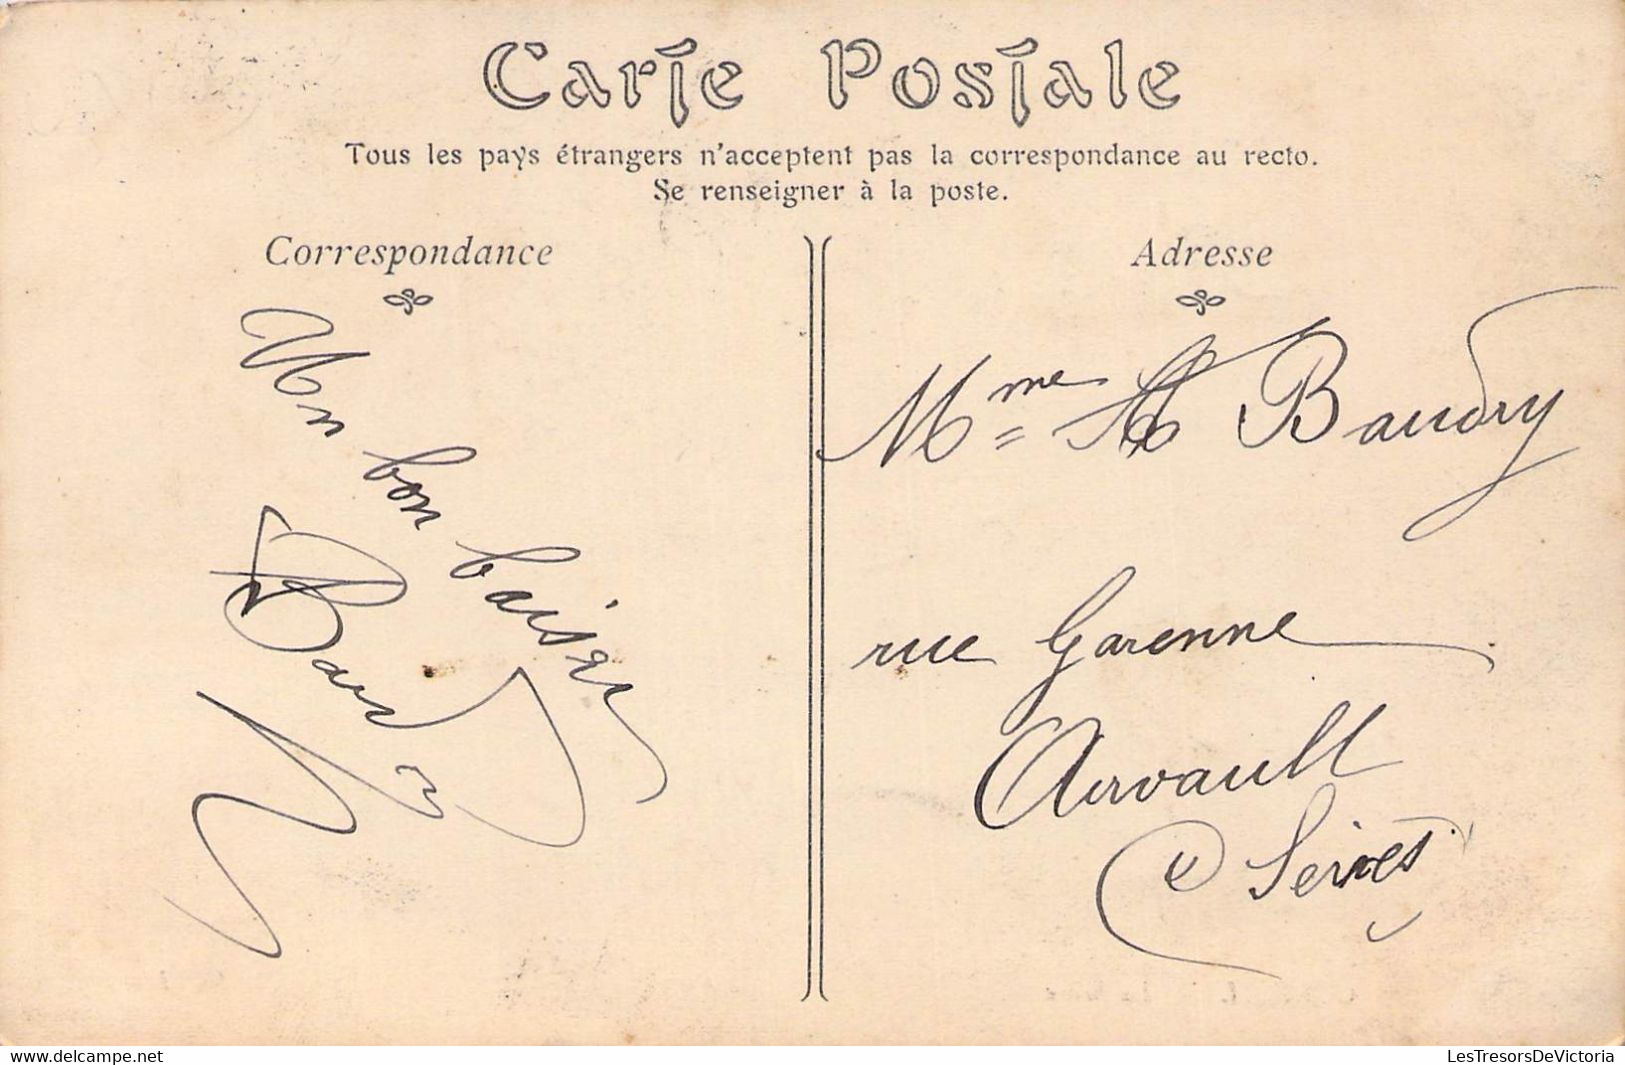 Carte Postale
Tous les pays étrangers n'acceptent pas la correspondance au recto.
Se renseigner à la poste.
Correspondance
Adresse
Un bon baiser
Baudry
Mme Baudry
rue Garenne
Airvault
2 Sèvres
www.delcampe.net
LesTresorsDeVictoria